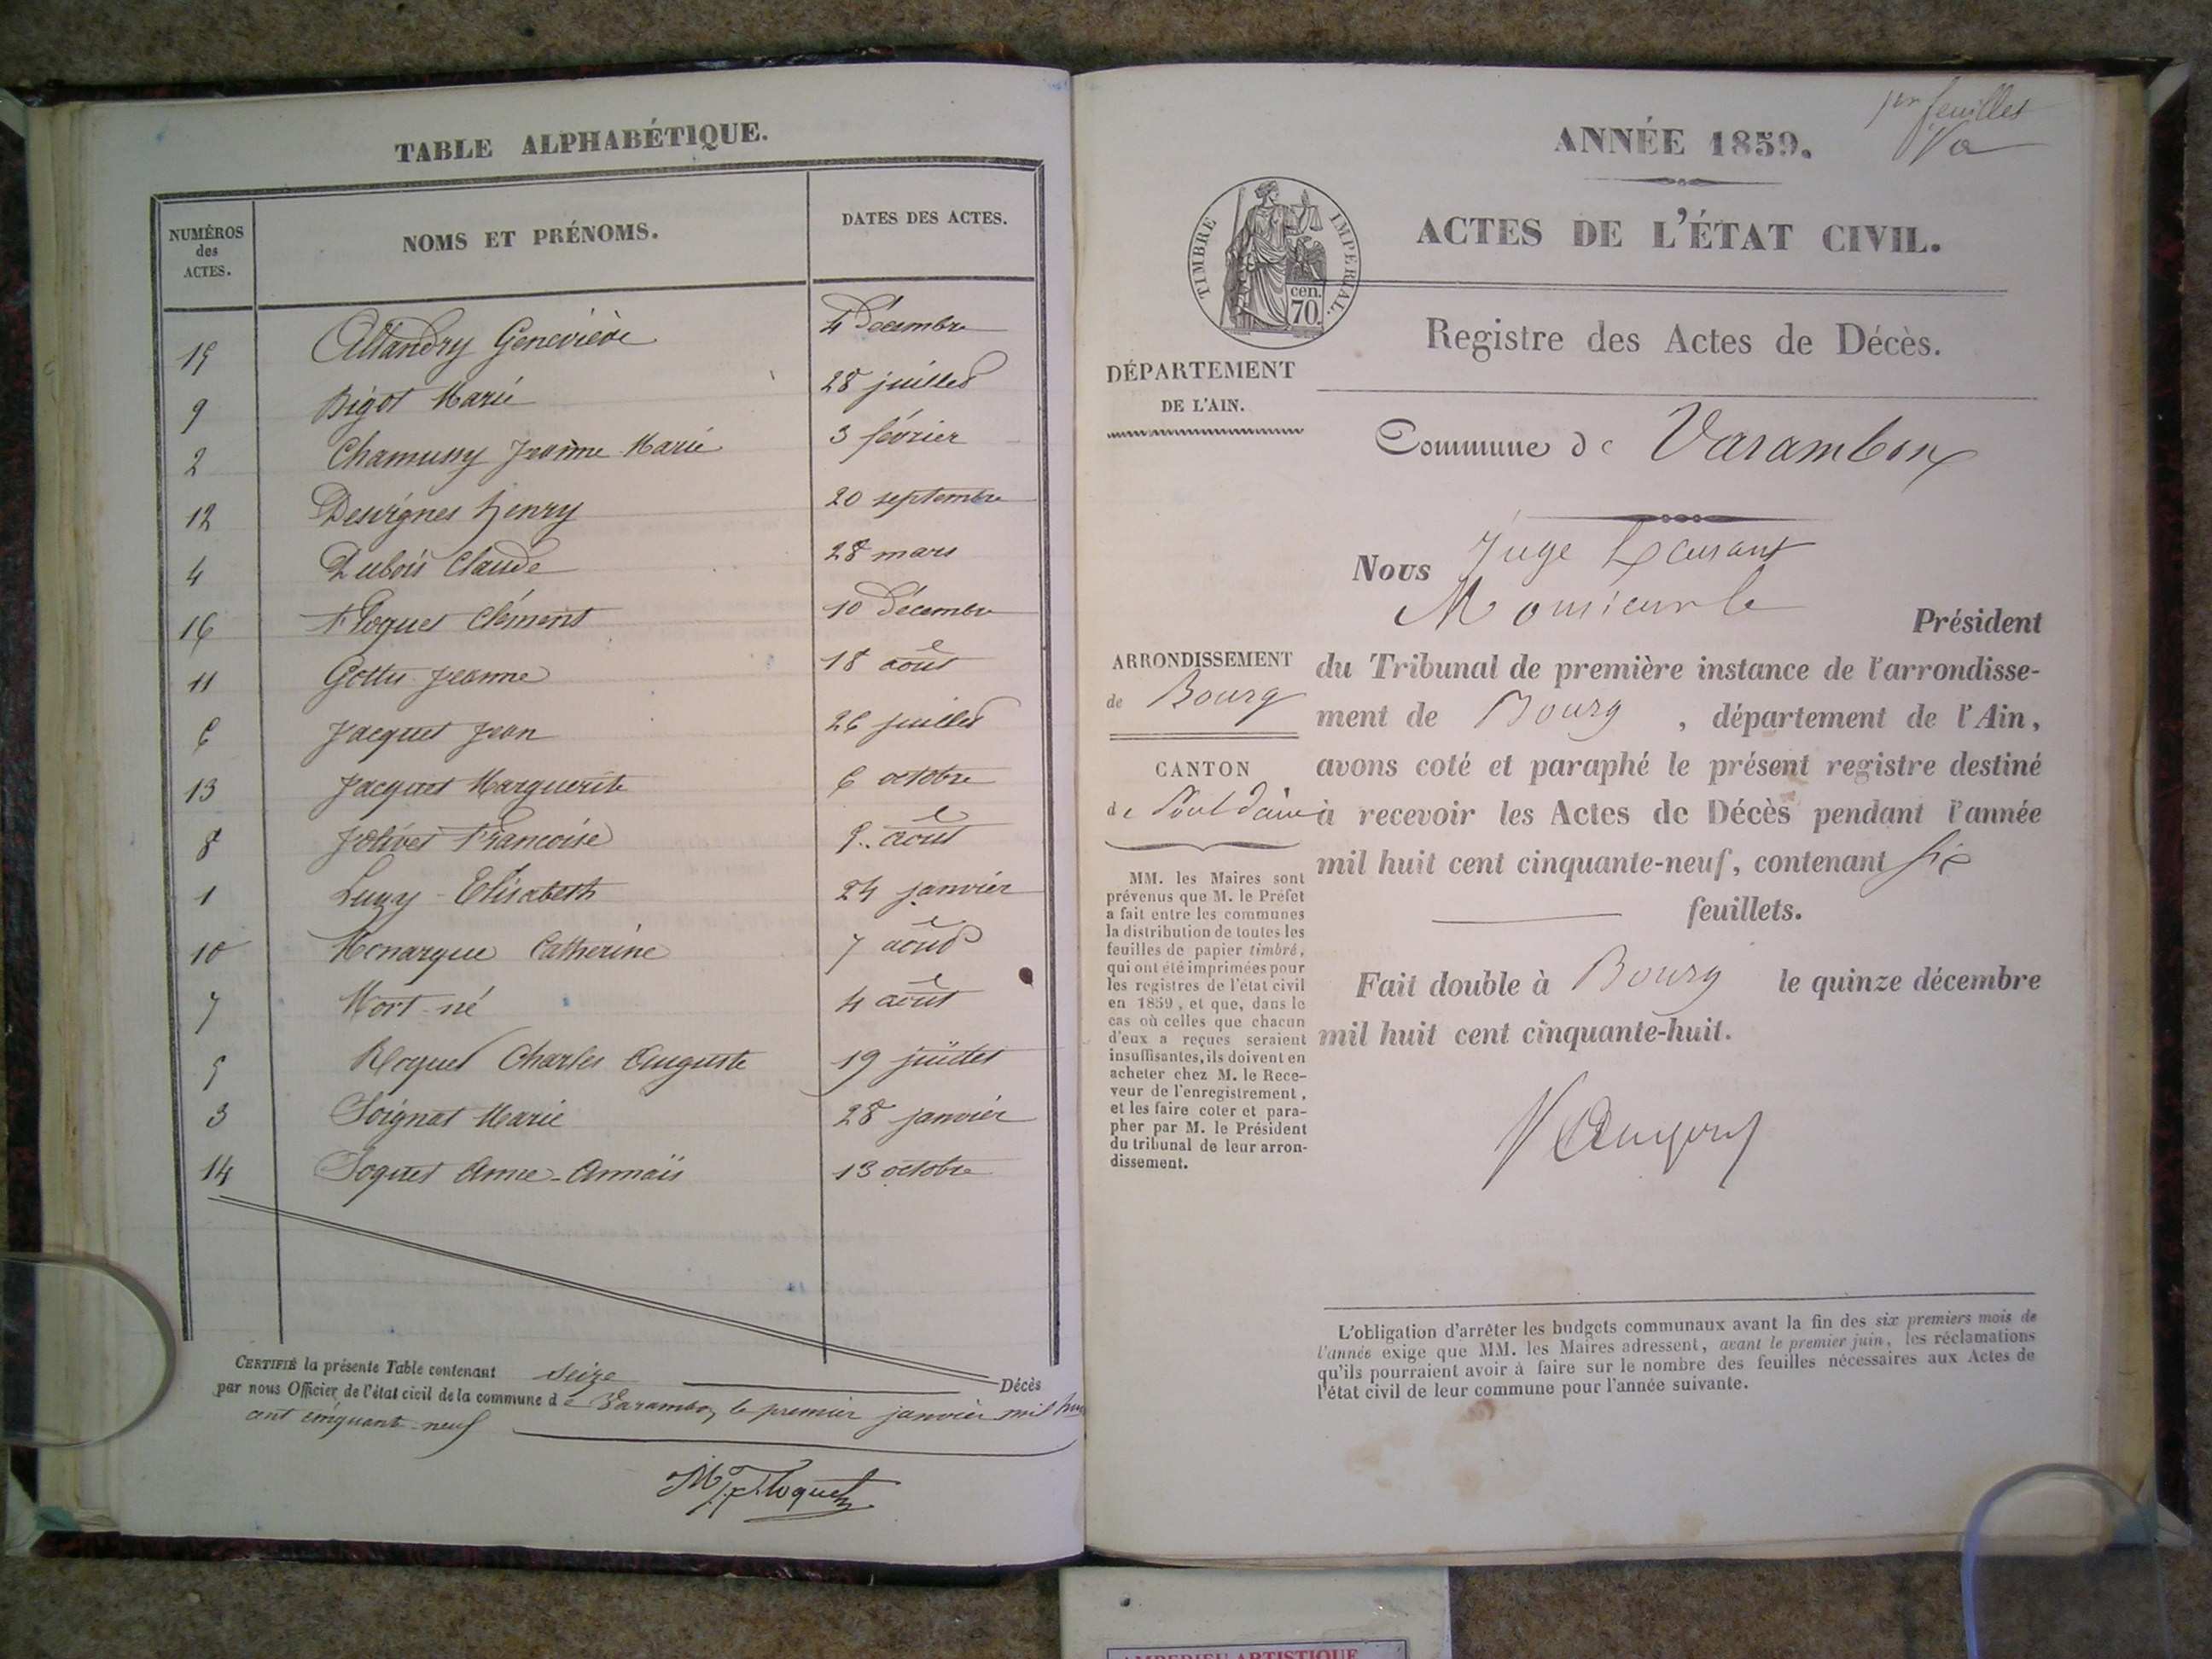 TABLE ALPHABÉTIQUE.
NUMÉROS
des
ACTES.
NOMS ET PRÉNOMS.
DATES DES ACTES.
15 Geneviève 4 Décembre
9 Bigot Marie 28 juillet
2 Chamussy Jeanne Marie 3 février
12 Desvignes henry 20 septembre
4 Dubois Claude 28 mars
16 Floquet Clément 10 Décembre
11 Jeanne 18 août
6 Jacquet Jean 26 juillet
13 Jacquet Marguerite 6 octobre
8 Jolivet Francoise 5 août
1 Luzy Elisabeth 24 janvier
10 Monarque Catherine 7 août
7 Mort-né 4 août
5 Charles Auguste 19 juillet
3 Soignat Marie 28 janvier
14 Anne-Annaïs 13 octobre
CERTIFIÉ la présente Table contenant seize Décès
par nous Officier de l'état civil de la commune de Varambon le premier janvier mil huit
cent cinquante-neuf
Floquet
feuillet
ANNÉE 1859.
ACTES DE L'ÉTAT CIVIL.
TIMBRE IMPÉRIAL.
70 cen.
Registre des Actes de Décès.
DÉPARTEMENT
DE L'AIN.
Commune de Varambon
Nous Juge
Monsieur le Président
ARRONDISSEMENT
de Bourg
CANTON
de Pont d'ain
du Tribunal de première instance de l'arrondisse-
ment de Bourg , département de l'Ain,
avons coté et paraphé le présent registre destiné
à recevoir les Actes de Décès pendant l'année
mil huit cent cinquante-neuf, contenant six
feuillets.
MM. les Maires sont
prévenus que M. le Préfet
a fait entre les communes
la distribution de toutes les
feuilles de papier timbré,
qui ont été imprimées pour
les registres de l'état civil
en 1859, et que, dans le
cas où celles que chacun
d'eux a reçues seraient
insuffisantes, ils doivent en
acheter chez M. le Rece-
veur de l'enregistrement,
et les faire coter et para-
pher par M. le Président
du tribunal de leur arron-
dissement.
Fait double à Bourg le quinze décembre
mil huit cent cinquante-huit.
L'obligation d'arrêter les budgets communaux avant la fin des six premiers mois de
l'année exige que MM. les Maires adressent, avant le premier juin, les réclamations
qu'ils pourraient avoir à faire sur le nombre des feuilles nécessaires aux Actes de
l'état civil de leur commune pour l'année suivante.
ARTISTIQUE